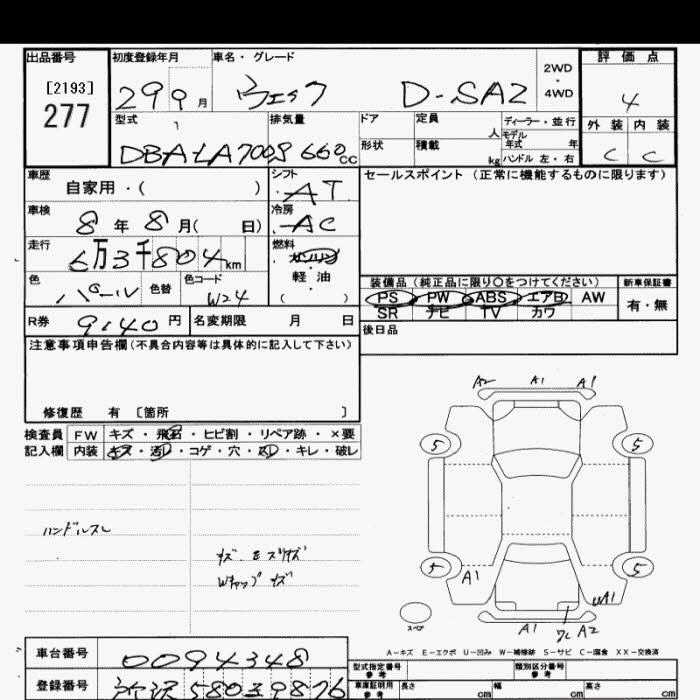 出品番号 初度登録年月 車名・グレード 評価点
[2193] 2WD・4WD
277 29 9月 ウェイク D-SA2 4
型式 排気量 ドア 定員 人 ディーラー・並行 外装 内装
モデル年式 年
DBA-LA700S 660cc 形状 積載 kg ハンドル 左・右 C C
車歴 シフト セールスポイント (正常に機能するものに限ります)
自家用・( ) AT
車検 冷房
8年8月( 日) AC
走行 燃料
6万3千804km ガソリン
色 色替 色コード 軽油 装備品(純正品に限り○をつけてください) 新車保証書
パール W24 ( ) PS PW ABS エアB AW 有・無
SR ナビ TV カワ
R券 9140円 名変期限 月 日 後日品
注意事項申告欄(不具合内容等は具体的に記入して下さい)
修復歴 有 〔箇所 〕
検査員 FW キズ・飛石・ヒビ割・リペア跡・×要
記入欄 内装 キズ・汚レ・コゲ・穴・凹・キレ・破レ
A2 A1 A1
5 5
ハンドルスレ
キズ・モスリキズ
Wキャップキズ
5 A1 5
UA1
A1 ワレ A2
スペア
A-キズ E-エクボ U-凹み W-補修跡 S-サビ C-腐食 XX-交換済
車台番号 0094348 型式指定番号 参考 類別区分番号 参考
登録番号 所沢 580 て 9876 車庫証明用 参考 長さ cm 幅 cm 高さ cm